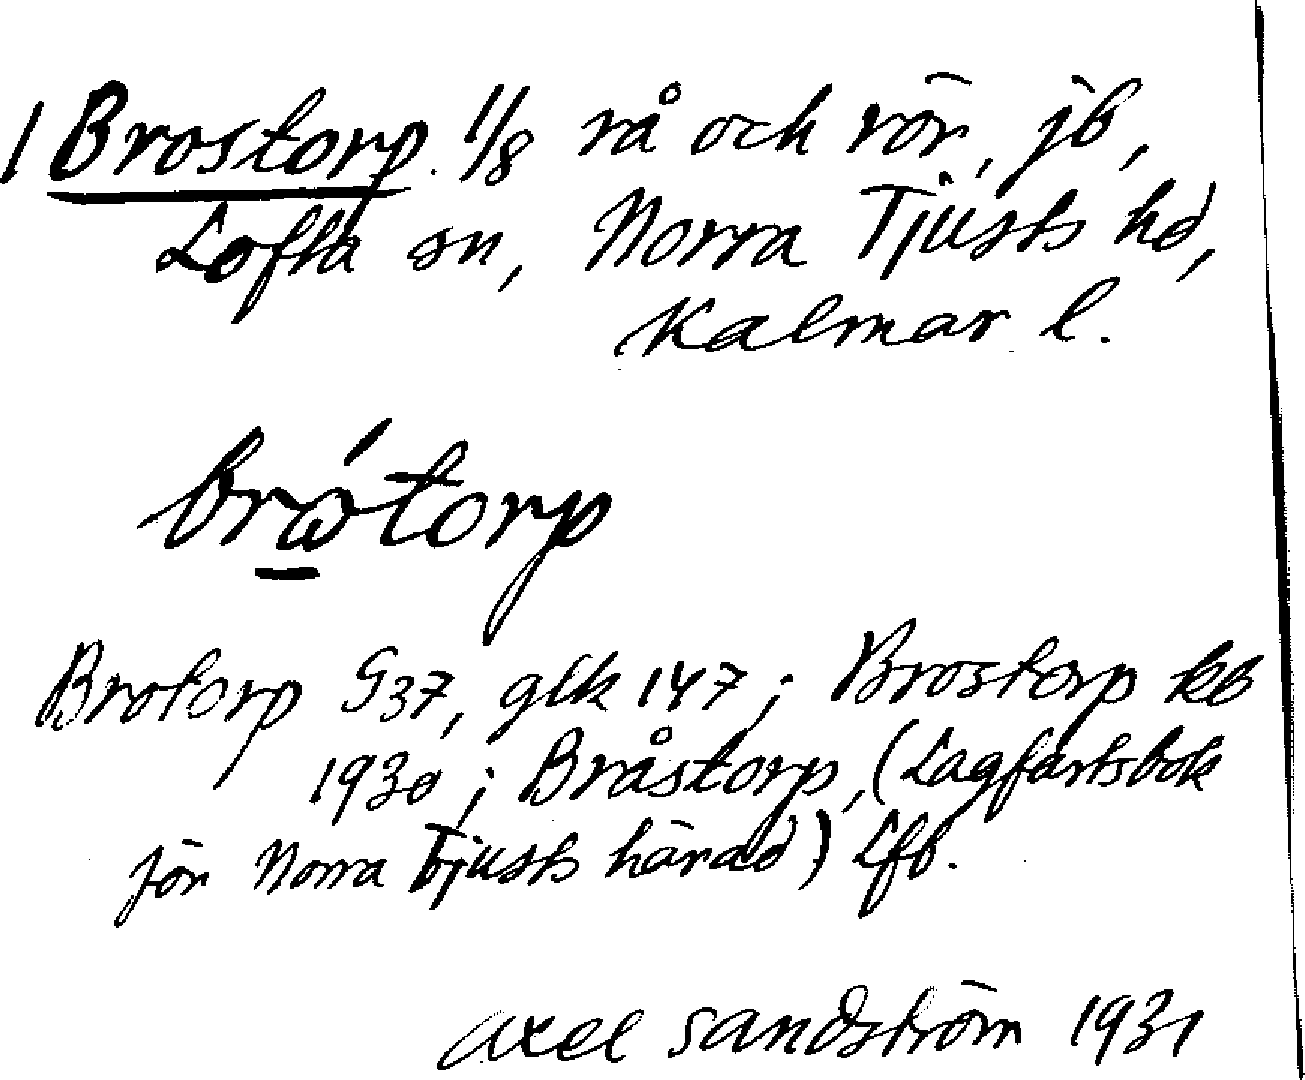 1 Brostorp. 1/8 rå och rör, jb,
Lofta sn, Norra Tjusts hd,
Kalmar l.
brώtorp
Brotorp S37, glk 147; Brostorp kb
1930; Bråstorp, (Lagfartsbok
för Norra Tjusts härad) Lfb.
Axel Sandström 1931